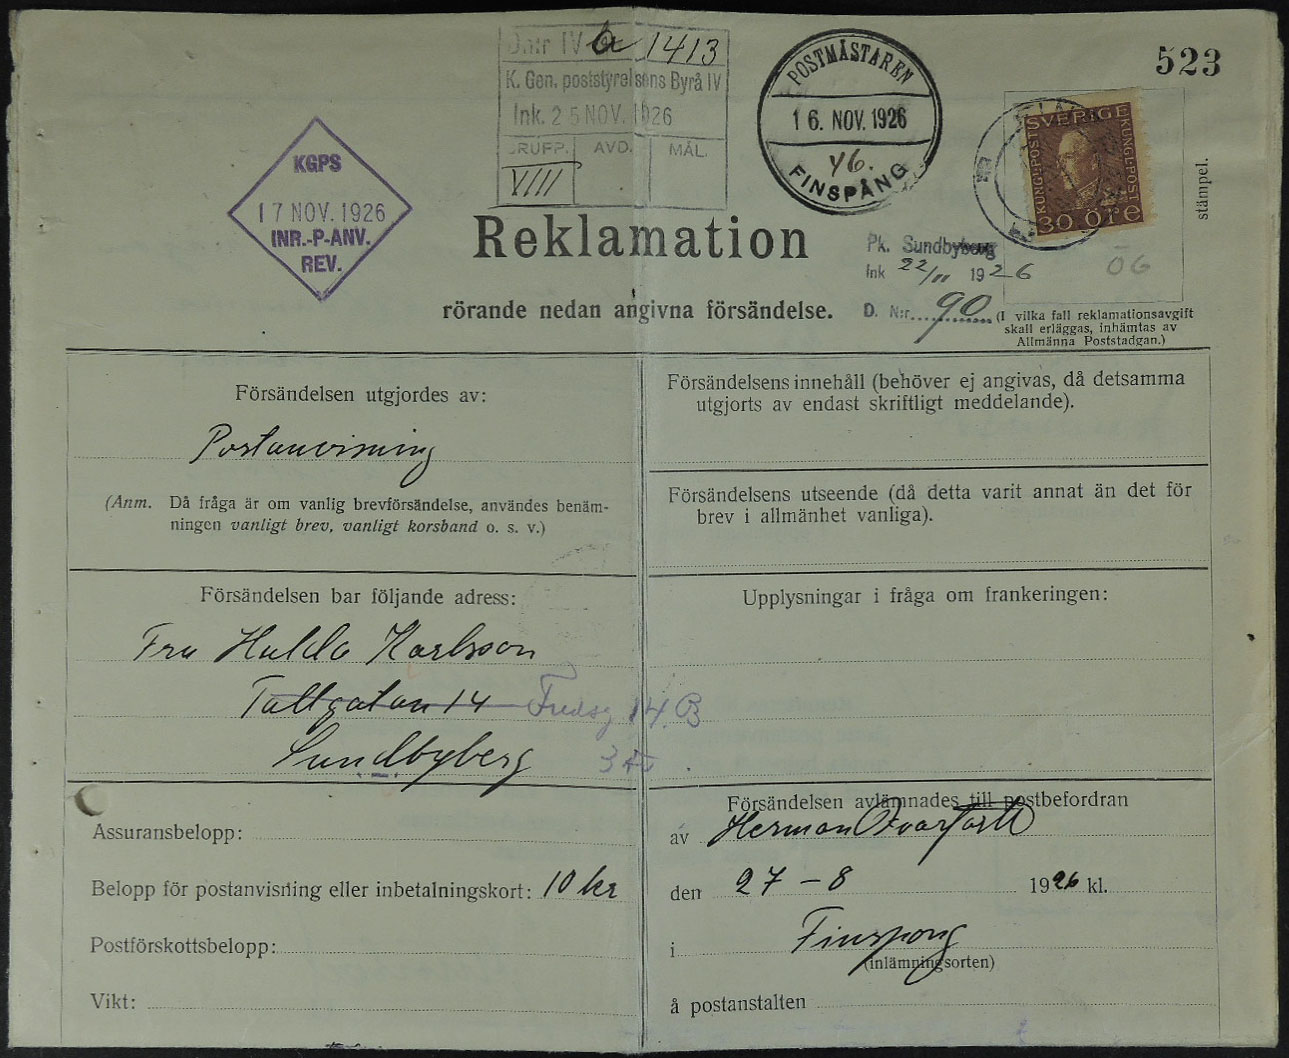 523
Dnr IV a 1413
K. Gen. poststyrelsens Byrå IV
Ink. 25 NOV. 1926
GRUPP. AVD. MÅL.
VIII
POSTMÄSTAREN
16. NOV. 1926
46.
FINSPÅNG
SVERIGE
KUNGL: POST
KUNGL: POST
30 öre
stämpel.
KGPS
17 NOV. 1926
INR.-P-ANV.
REV.
Reklamation
rörande nedan angivna försändelse.
Pk. Sundbyberg
Ink 22/11 1926
D. N:r 90
ÖG
(I vilka fall reklamationsavgift
skall erläggas, inhämtas av
Allmänna Poststadgan.)
Försändelsen utgjordes av:
Postanvisning
(Anm. Då fråga är om vanlig brevförsändelse, användes benäm-
ningen vanligt brev, vanligt korsband o. s. v.)
Försändelsens innehåll (behöver ej angivas, då detsamma
utgjorts av endast skriftligt meddelande).
Försändelsens utseende (då detta varit annat än det för
brev i allmänhet vanliga).
Försändelsen bar följande adress:
Fru Hulda Karlsson
Tallgatan 14 Fredsg 14 B
Sundbyberg
Upplysningar i fråga om frankeringen:
Assuransbelopp:
Belopp för postanvisning eller inbetalningskort: 10 kr
Postförskottsbelopp:
Vikt:
Försändelsen avlämnades till postbefordran
av Herman
den 27-8 1926 kl.
i Finspong
(inlämningsorten)
å postanstalten